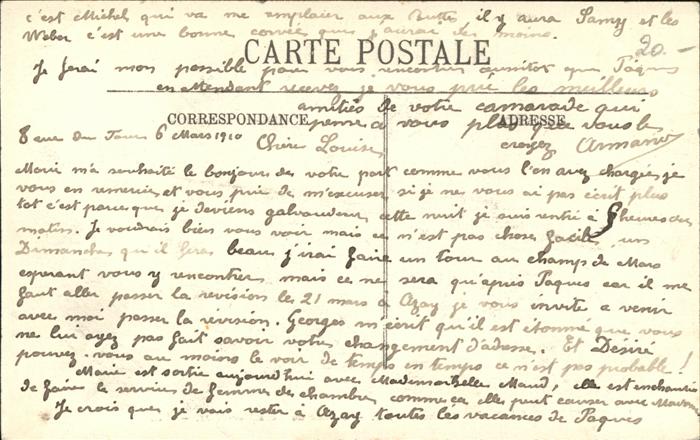 c'est Michel qui va me remplacer aux Buttes, il y aura Samzy et les
Weber c'est une bonne corvée que j'aurai de moins.
20.-
CARTE POSTALE
Je ferai mon possible pour vous rencontrer aussitot que Paques
en attendant recevez je vous prie les meilleurs
amitiés de votre camarade qui
CORRESPONDANCE
pense à vous plus que vous le
ADRESSE
8 rue du Four 6 Mars 1910
Chère Louise
croyez Armand
Marie m'a souhaité le bonjour de votre part comme vous l'en avez chargée, je
vous en remercie et vous prie de m'excuser si je ne vous ai pas écrit plus
tot c'est parce que je deviens galvaudeur, cette nuit je suis rentré à heures du
matin. Je voudrais bien vous voir mais ce n'est pas chose facile, un
Dimanche qu'il fera beau j'irai faire un tour au champs de Mars
esperant vous y rencontrer, mais ce ne sera qu'après Paques car il me
faut aller passer la revision le 21 mars à Azay je vous invite a venir
avec moi passer la revision. Georges m'ecrit qu'il est étonné que vous
ne lui ayez pas fait savoir votre changement d'adresse. Et Désiré
pouvez-vous au moins le voir de temps en temps ce n'est pas probable!
Marie est sortie aujourd'hui avec Mademoiselle Maud, elle est enchantée
de faire le service de femme de chambre, comme ça elle peut causer avec
Je crois que je vais rester à Azay toutes les vacances de Paques